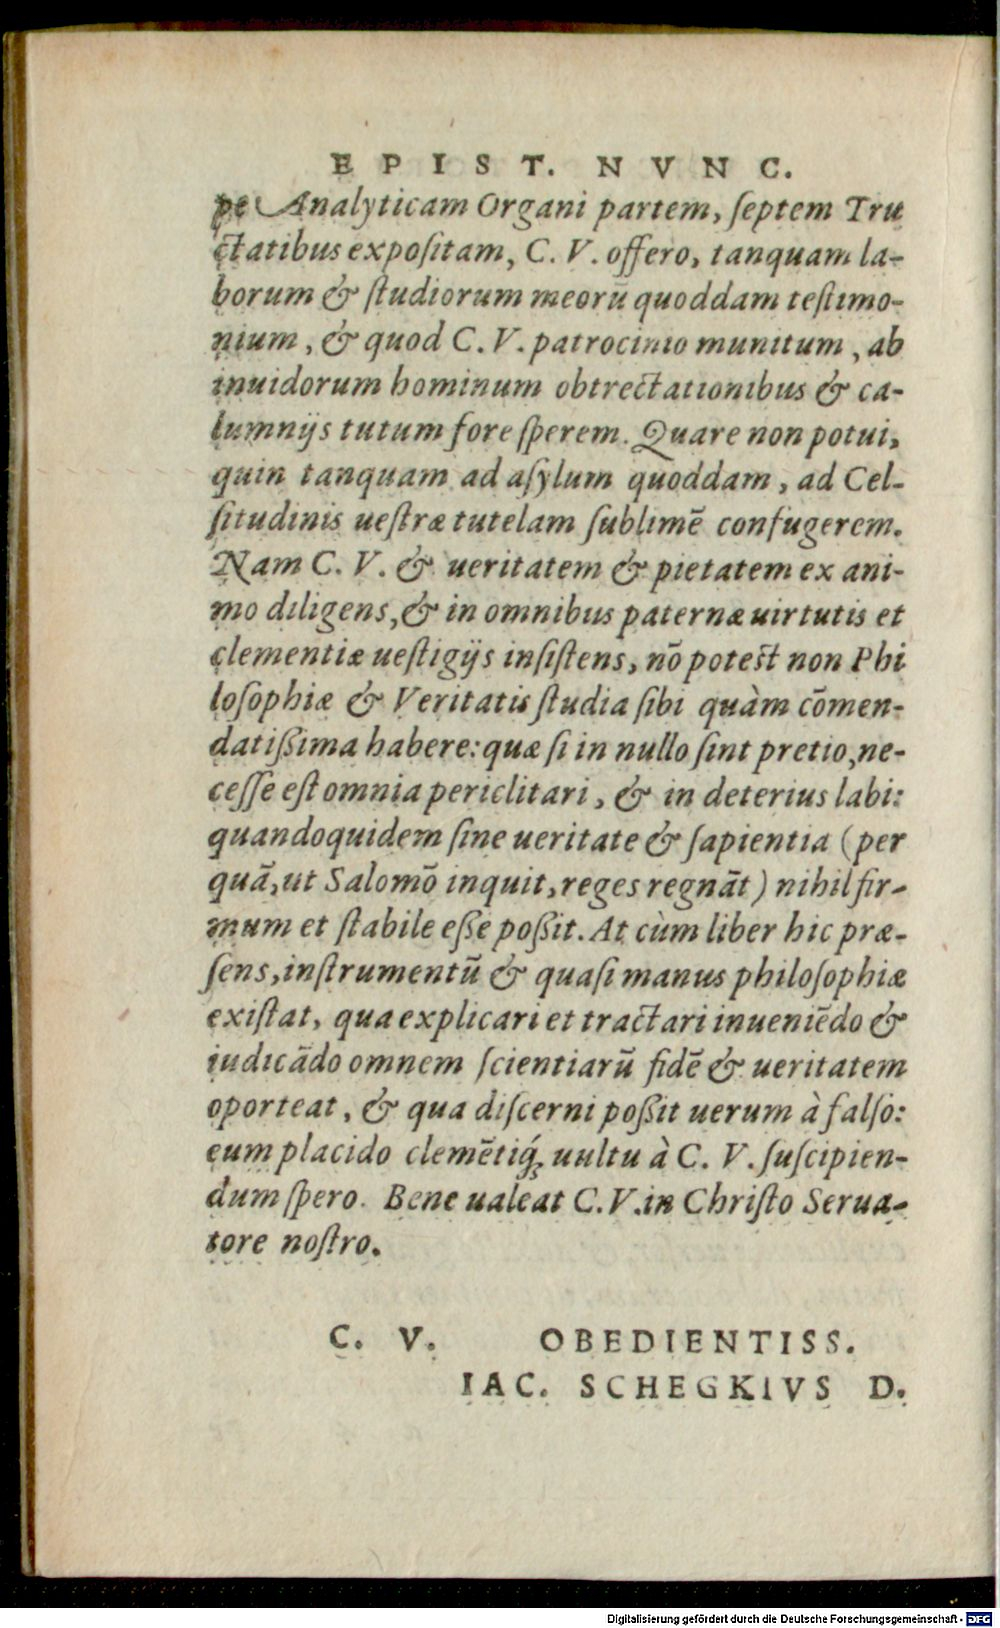 EPIST. NVNC.
pe Analyticam Organi partem, ſeptem Tra
ctatibus expoſitam, C. V. offero, tanquam la-
borum & ſtudiorum meorū quoddam teſtimo-
nium, & quod C. V. patrocinio munitum, ab
inuidorum hominum obtrectationibus & ca-
lumnijs tutum fore ſperem. Quare non potui,
quin tanquam ad aſylum quoddam, ad Cel-
ſitudinis ueſtræ tutelam ſublimē confugerem.
Nam C. V. & ueritatem & pietatem ex ani-
mo diligens, & in omnibus paternæ uirtutis et
clementiæ ueſtigijs inſiſtens, nō poteſt non Phi
loſophiæ & Veritatis ſtudia ſibi quàm cōmen-
datißima habere: quæ ſi in nullo ſint pretio, ne-
ceſſe eſt omnia periclitari, & in deterius labi:
quandoquidem ſine ueritate & ſapientia (per
quā, ut Salomō inquit, reges regnāt) nihil fir-
mum et ſtabile eße poßit. At cùm liber hic præ-
ſens, inſtrumentū & quaſi manus philoſophiæ
exiſtat, qua explicari et tractari inueniēdo &
iudicādo omnem ſcientiarū fidē & ueritatem
oporteat, & qua diſcerni poßit uerum à falſo:
eum placido clemētiq́; uultu à C. V. ſuſcipien-
dum ſpero. Bene ualeat C. V. in Chriſto Serua-
tore noſtro.
C. V. OBEDIENTISS.
IAC. SCHEGKIVS D.
Digitalisierung gefördert durch die Deutsche Forschungsgemeinschaft - DFG